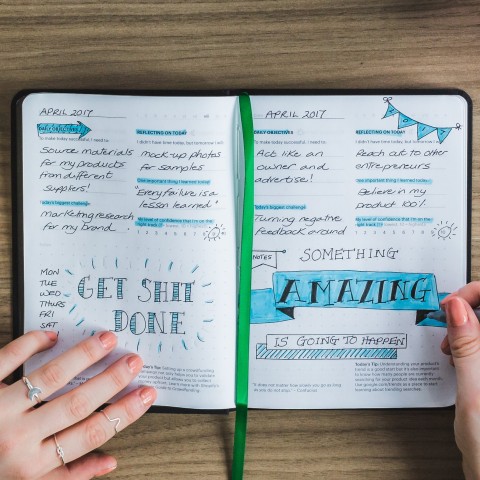 APRIL 2017
DAILY OBJECTIVES
To make today successful I need to:
Source materials
for my products
from different
suppliers!
Today's biggest challenge
marketing research
for my brand.
MON
TUE
WED
THURS
FRI
SAT
GET SHIT
DONE
REFLECTING ON TODAY
I didn't have time today, but tomorrow I will
mock-up photos
for samples
One important thing I learned today:
"Every failure is a
lesson learned"
My level of confidence that I'm on the
right track
1 2 3 4 5 6 7 8 9
Today's Tip:
APRIL 2017
DAILY OBJECTIVES
To make today successful I need to:
Act like an
owner and
advertise!
Today's biggest challenge
Turning negative
feedback around
REFLECTING ON TODAY
I didn't have time today, but tomorrow I will
Reach out to other
entrepreneurs
One important thing I learned today:
Believe in my
product 100%
My level of confidence that I'm on the
right track
1 2 3 4 5 6 7 8 9
NOTES
SOMETHING
AMAZING
IS GOING TO HAPPEN
"It does not matter how slowly you go so long
as you do not stop." - Confucius
Today's Tip: Understanding your